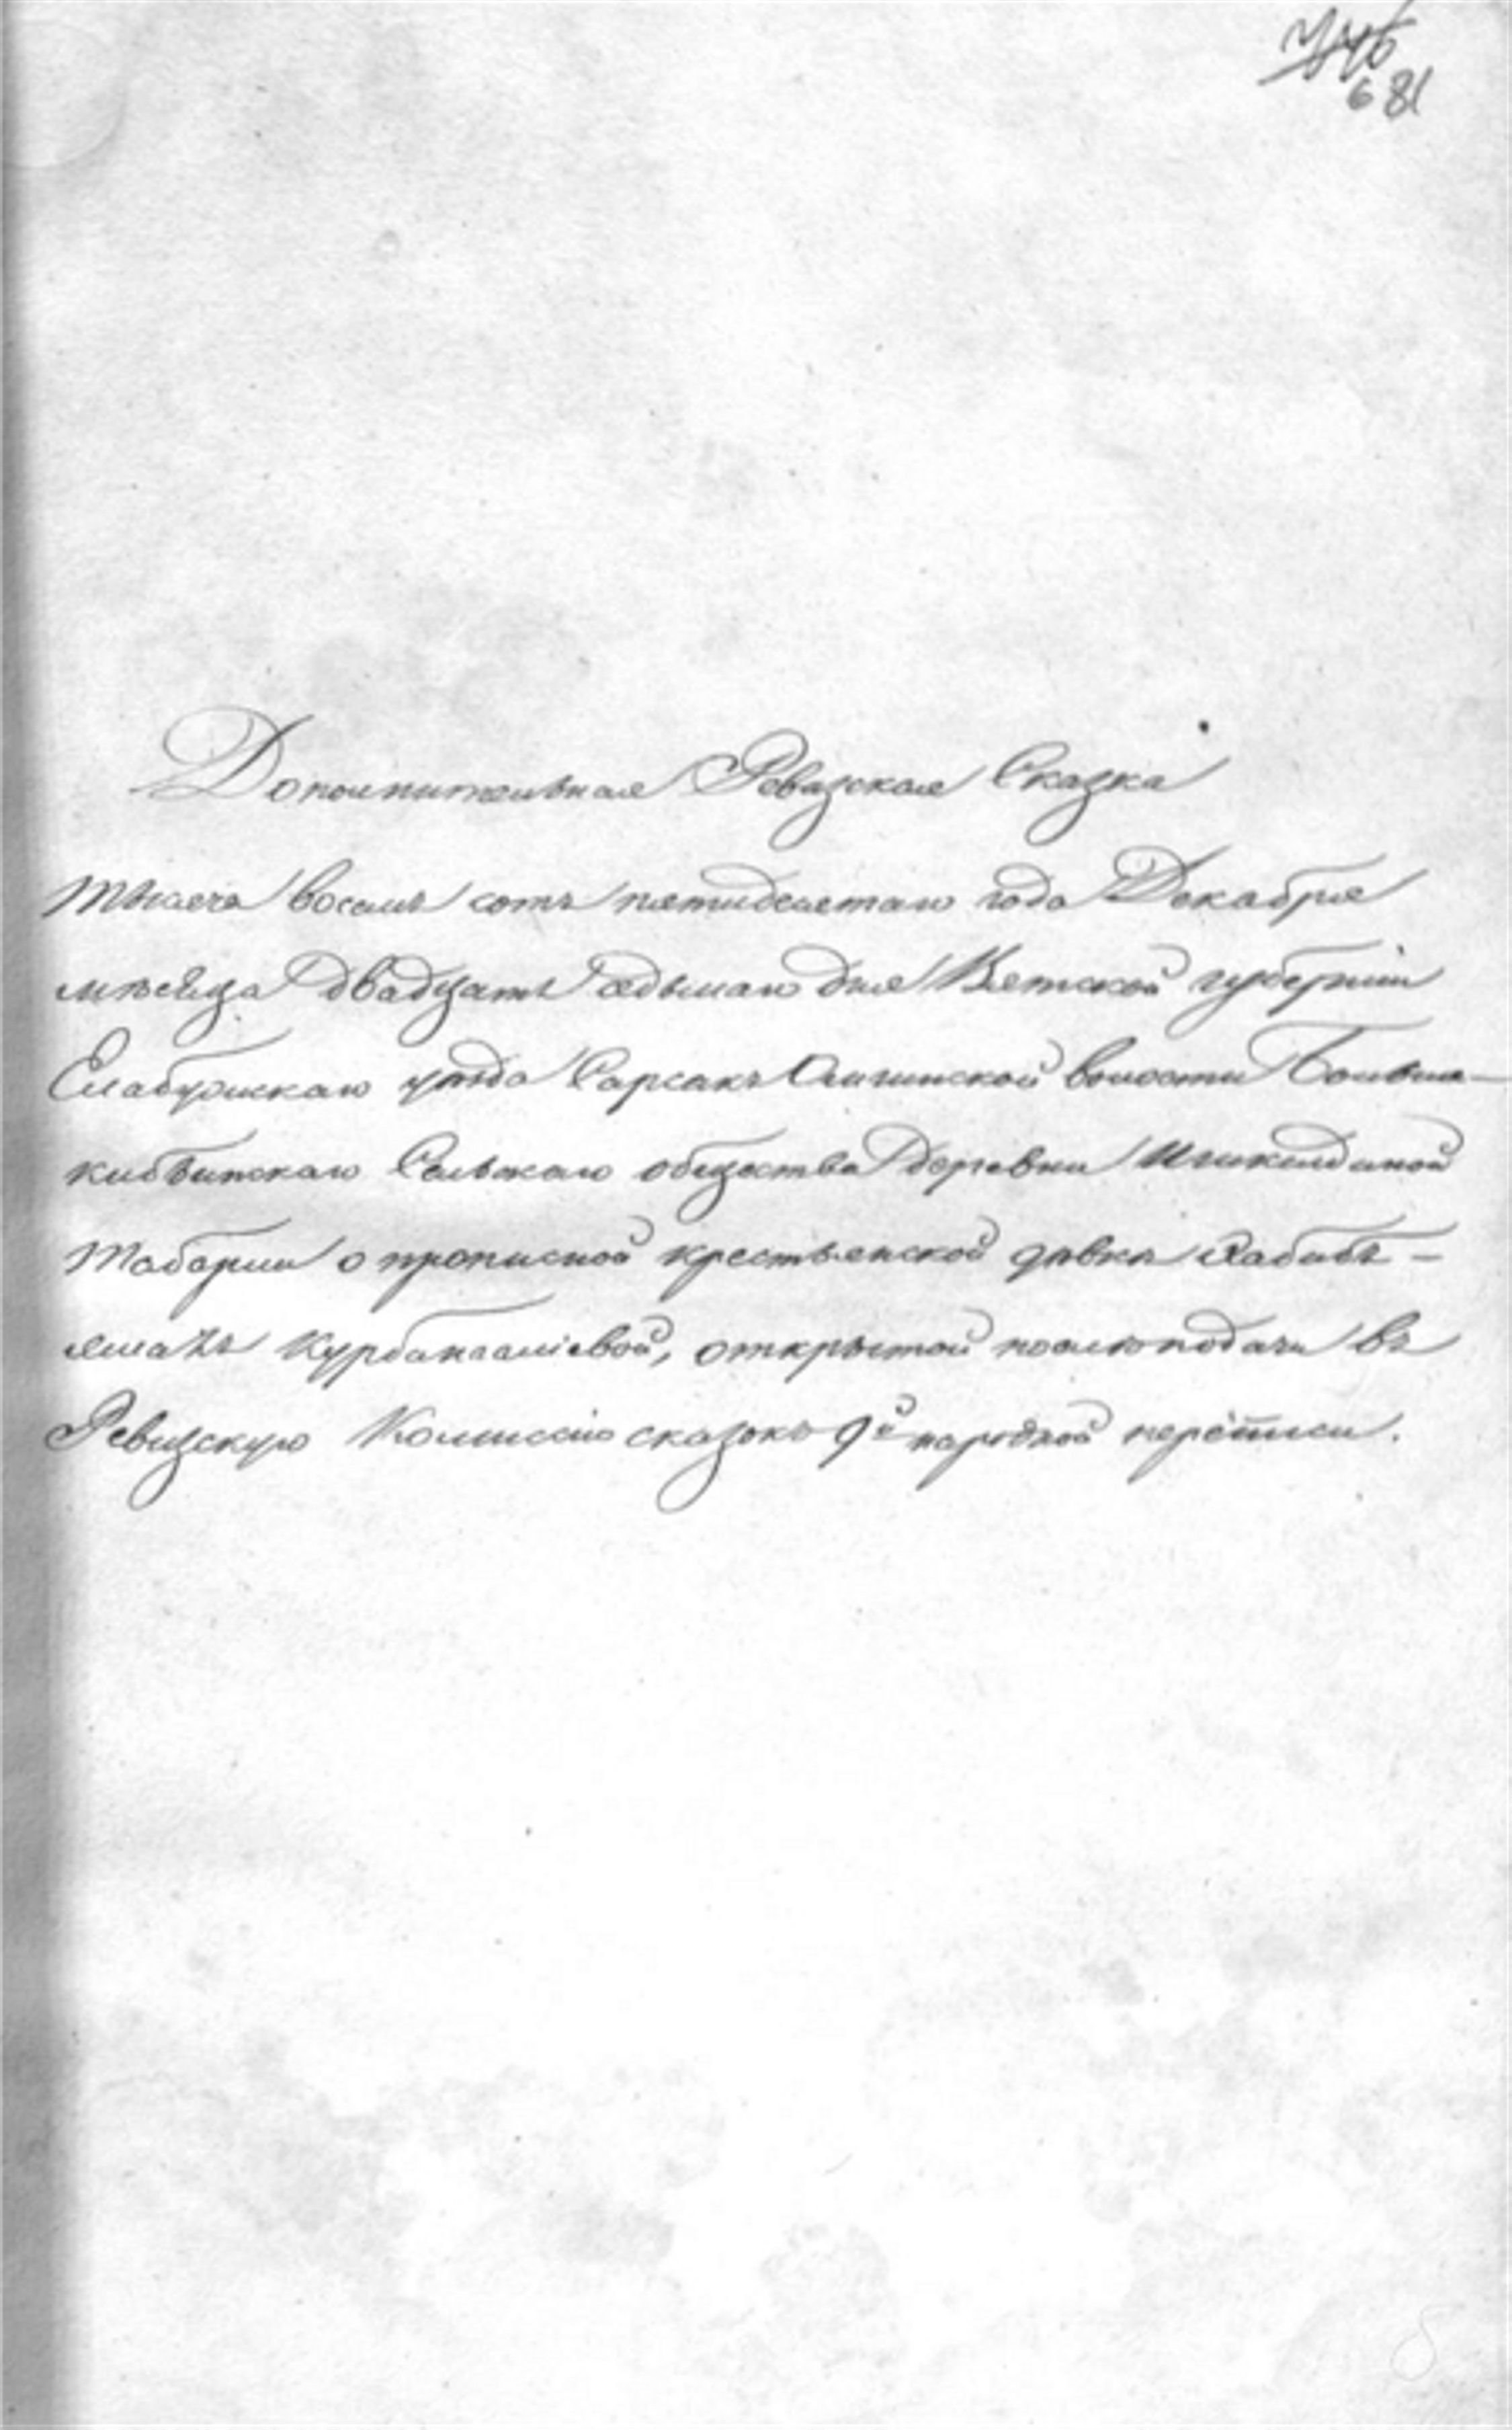 681
Дополнительная Ревизская Сказка
тысяча восемь сотъ пятидесятаго года Декабря
мѣсяца двадцать седьмаго дня Вятской губерніи
Елабужскаго уѣзда Сарсакъ Омгинской волости Больше-
кибьинскаго Сельскаго общества деревни
Табарли о прописной крестьянской дѣвкѣ Рабигъ-
Курбангаліевой, открытой послѣ подачи въ
Ревизскую Коммисію сказокъ 9й народной переписи.